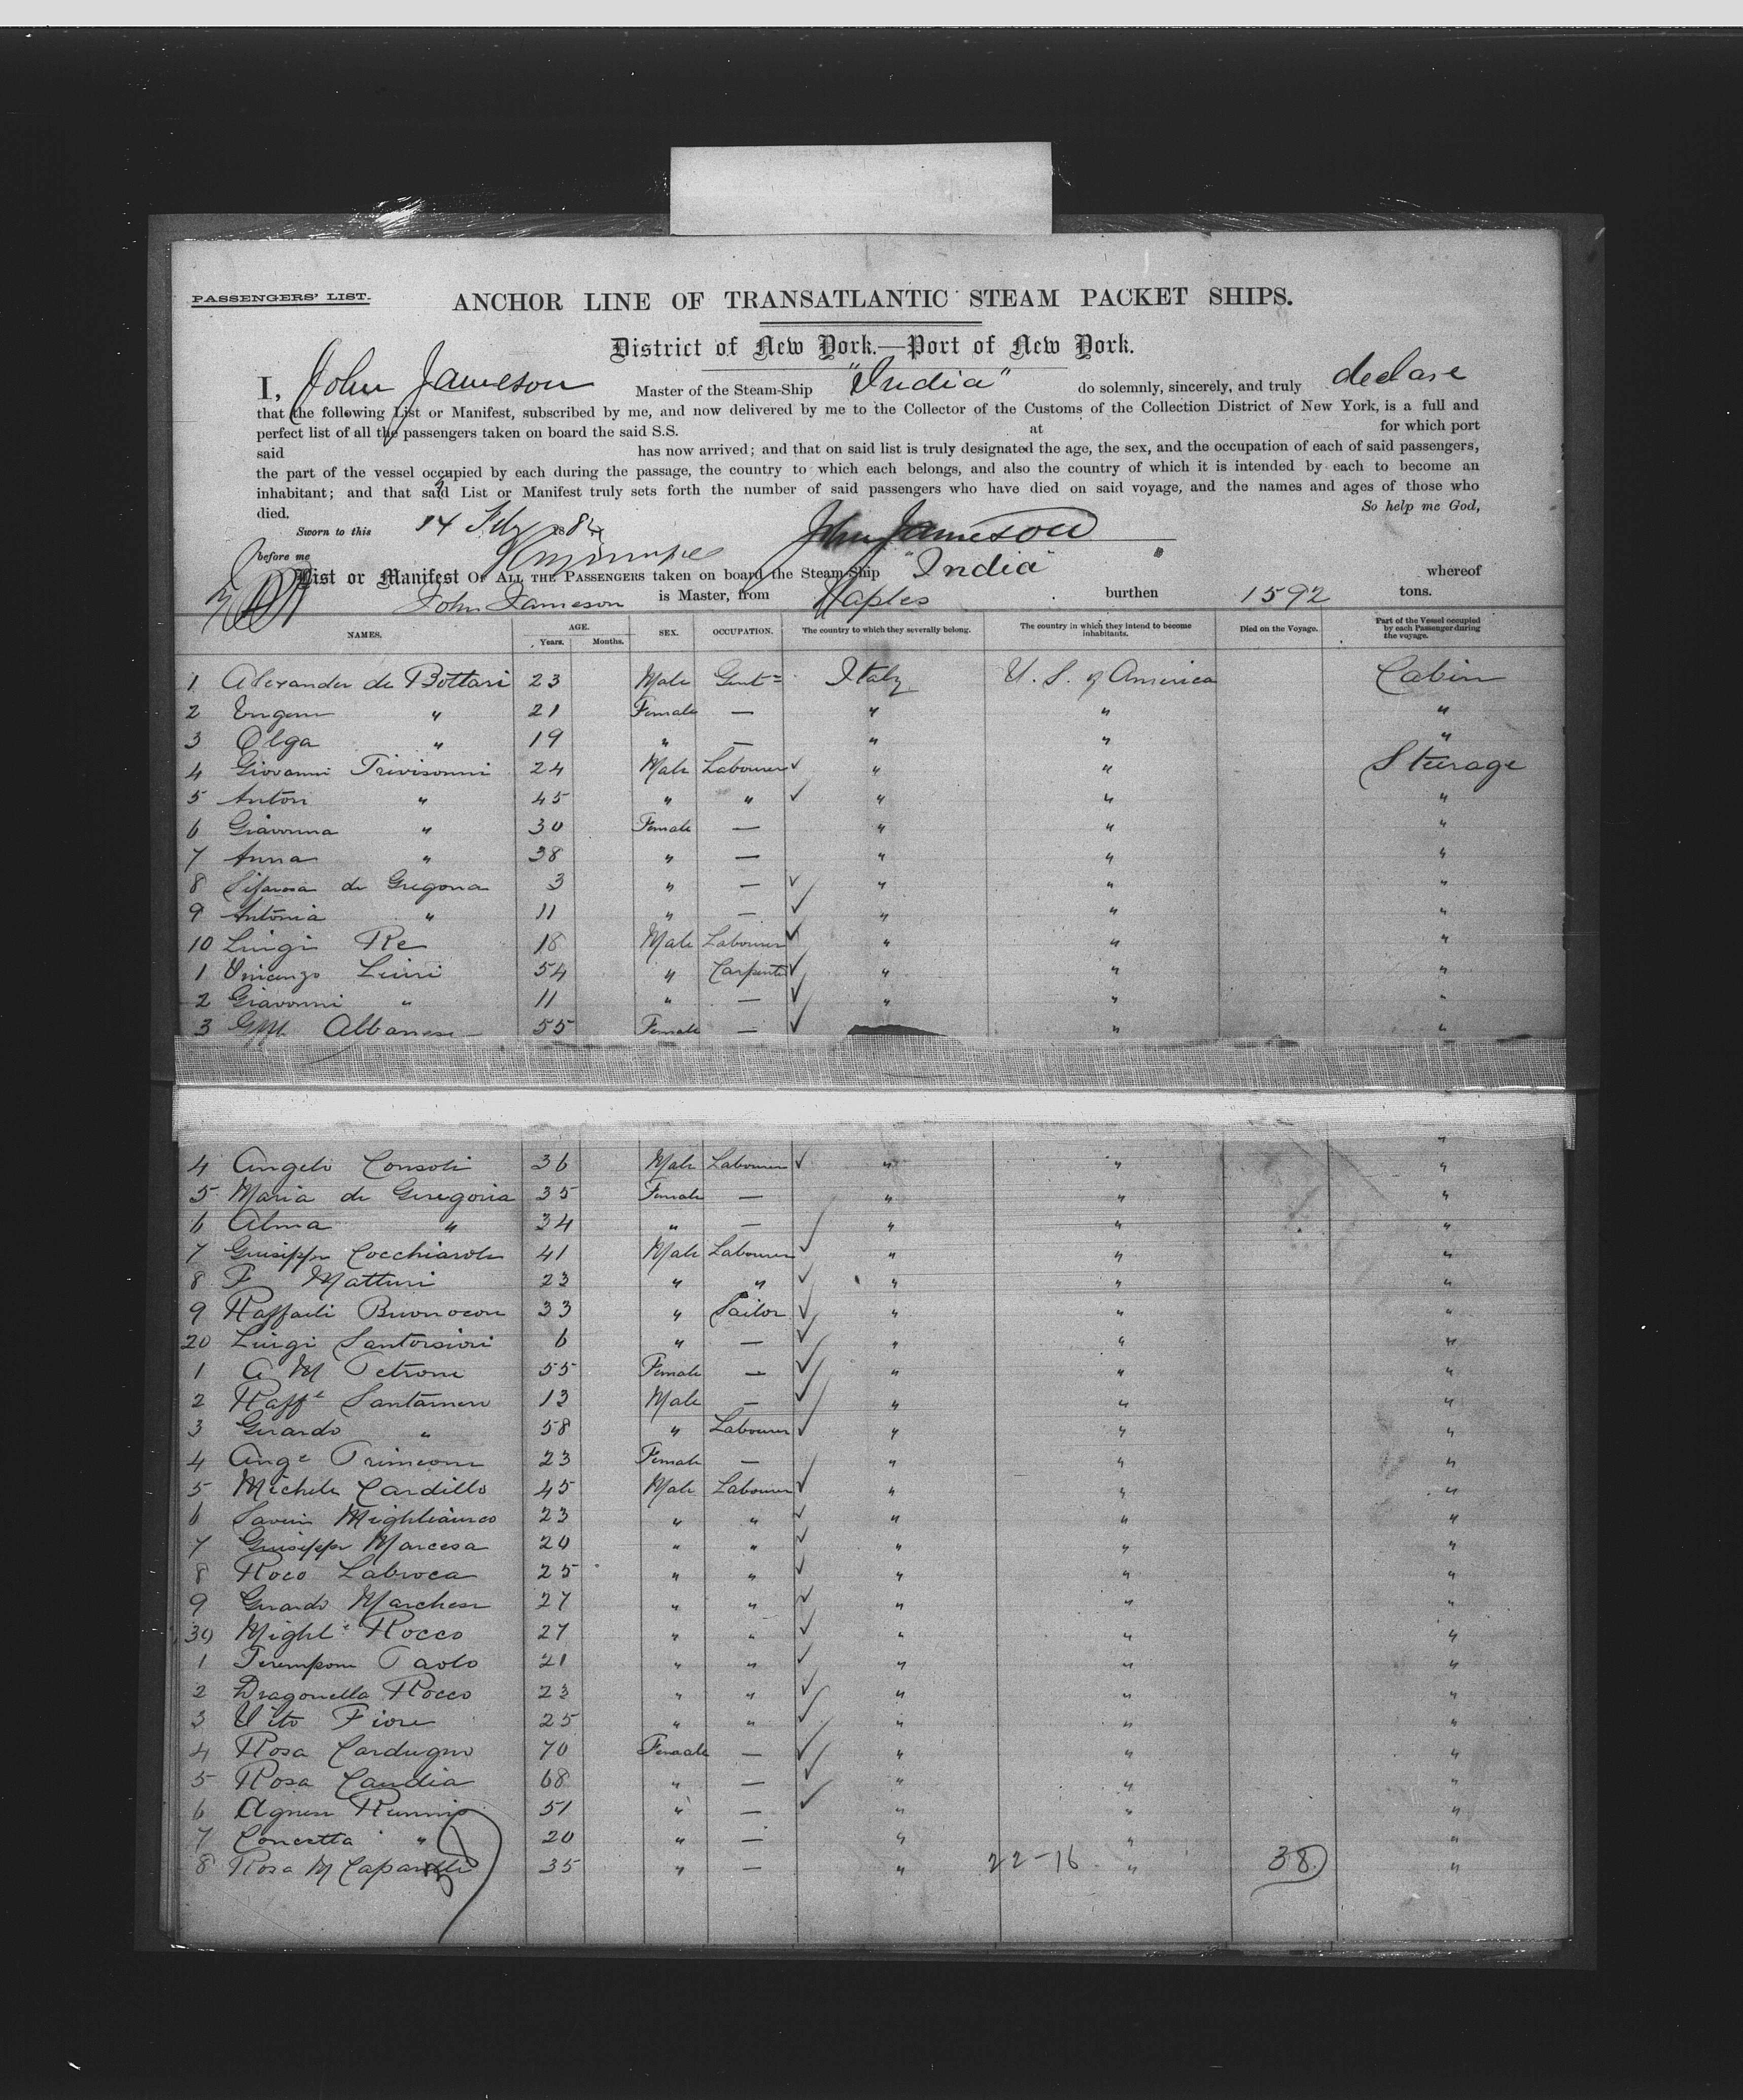 PASSENGERS' LIST.
ANCHOR LINE OF TRANSATLANTIC STEAM PACKET SHIPS.
District of New York.—Port of New York.
I, John Jameson Master of the Steam-Ship "India" do solemnly, sincerely, and truly declare
that the following List or Manifest, subscribed by me, and now delivered by me to the Collector of the Customs of the Collection District of New York, is a full and
perfect list of all the passengers taken on board the said S.S. at for which port
said has now arrived; and that on said list is truly designated the age, the sex, and the occupation of each of said passengers,
the part of the vessel occupied by each during the passage, the country to which each belongs, and also the country of which it is intended by each to become an
inhabitant; and that said List or Manifest truly sets forth the number of said passengers who have died on said voyage, and the names and ages of those who
died. So help me God,
Sworn to this 14 Feby 188 John Jameson
before me
List or Manifest OF ALL THE PASSENGERS taken on board the Steam-Ship "India" whereof
John Jameson is Master, from Naples burthen 1592 tons.
NAMES. AGE. Years. Months. SEX. OCCUPATION. The country to which they severally belong. The country in which they intend to become inhabitants. Died on the Voyage. Part of the Vessel occupied by each Passenger during the voyage.
1 Alexander de Bottari 23 Male Gent= Italy U. S. of America Cabin
2 " 21 Female — " " "
3 Olga " 19 " — " " "
4 Giovanni Trivisonni 24 Male Labourer " " Steerage
5 Anton " 45 " " " " "
6 Giavonna " 30 Female — " " "
7 Anna " 38 " — " " "
8 de Gregoria 3 " — " " "
9 Antonia " 11 " — " " "
10 Luigi Re 18 Male Labourer " " "
1 Vincenzo 54 " Carpenter " " "
2 Giavonni " 11 " — " " "
3 Albanese 55 Female — " "
4 Angelo Consoli 36 Male Labourer " " "
5 Maria de Gregoria 35 Female — " " "
6 Alma " 34 " — " " "
7 Guiseppe Cocchiarole 41 Male Labourer " " "
8 F Matturi 23 " " " " "
9 Raffaeli Buonocore 33 " Sailor " " "
20 Luigi 6 " — " " "
1 A M Petrone 55 Female — " " "
2 Raffe 13 Male — " " "
3 Gerardo " 58 " Labourer " " "
4 Ange 23 Female — " " "
5 Michele Cardillo 45 Male Labourer " " "
6 Saverio 23 " " " " "
7 Guiseppe Marcesa 20 " " " " "
8 Roco Labroca 25 " " " " "
9 Gerardo Marchese 27 " " " " "
30 Might Rocco 27 " " " " "
1 Paolo 21 " " " " "
2 Dragonella Rocco 23 " " " " "
3 Vito Fiore 25 " " " " "
4 Rosa Cardugno 70 Female — " " "
5 Rosa Candia 68 " — " " "
6 Agnese 51 " — " " "
7 Concetta " 20 " — " " "
8 Rosa M 35 " — " 22-16 " 38 "